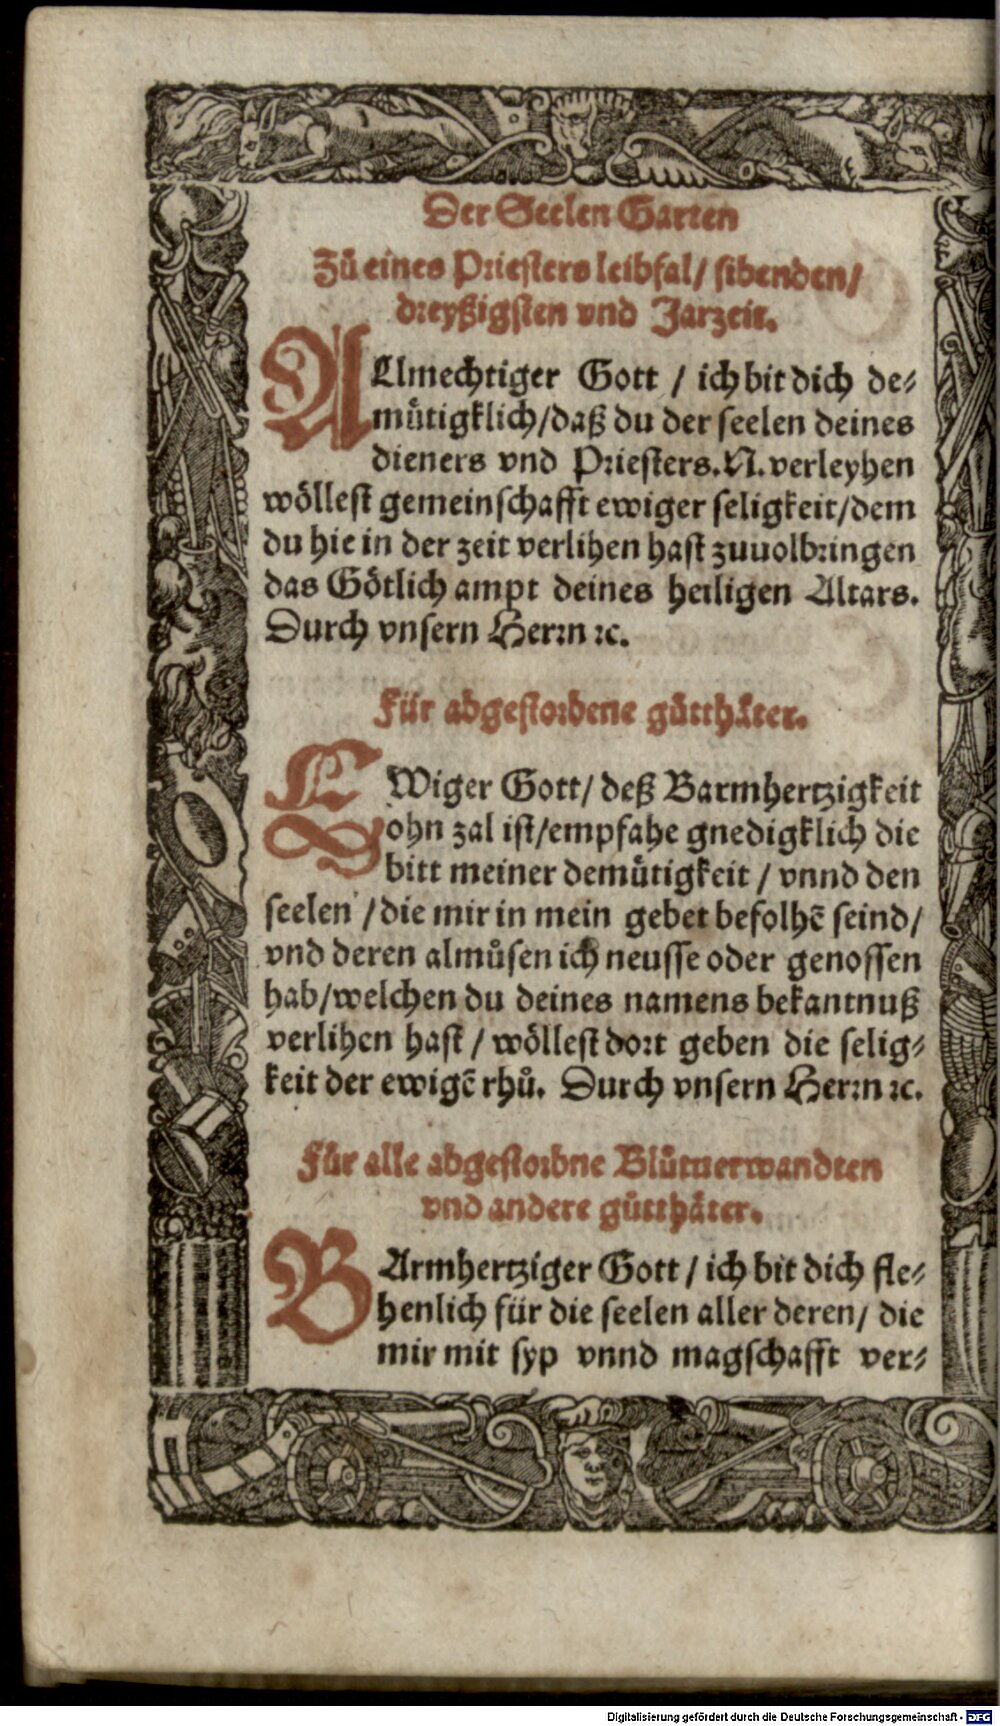 Der Seelen Garten
Zů eines Priesters leibfal/ sibenden/
dreyßigsten vnd Jarzeit.
ALlmechtiger Gott / ich bit dich de⸗
můtigklich/daß du der seelen deines
dieners vnd Priesters.N.verleyhen
wöllest gemeinschafft ewiger seligkeit/dem
du hie in der zeit verlihen hast zuuolbringen
das Götlich ampt deines heiligen Altars.
Durch vnsern Herrn ꝛc.
Für abgestorbene gůtthäter.
EWiger Gott/ deß Barmhertzigkeit
ohn zal ist/empfahe gnedigklich die
bitt meiner demůtigkeit / vnnd den
seelen /die mir in mein gebet befolhẽ seind/
vnd deren almůsen ich neusse oder genossen
hab/welchen du deines namens bekantnuß
verlihen hast / wöllest dort geben die selig⸗
keit der ewigẽ rhů. Durch vnsern Herrn ꝛc.
Für alle abgestorbne Blůtuerwandten
vnd andere gůtthäter.
BArmhertziger Gott / ich bit dich fle⸗
henlich für die seelen aller deren/ die
mir mit syp vnnd magschafft ver⸗
Digitalisierung gefördert durch die Deutsche Forschungsgemeinschaft - DFG